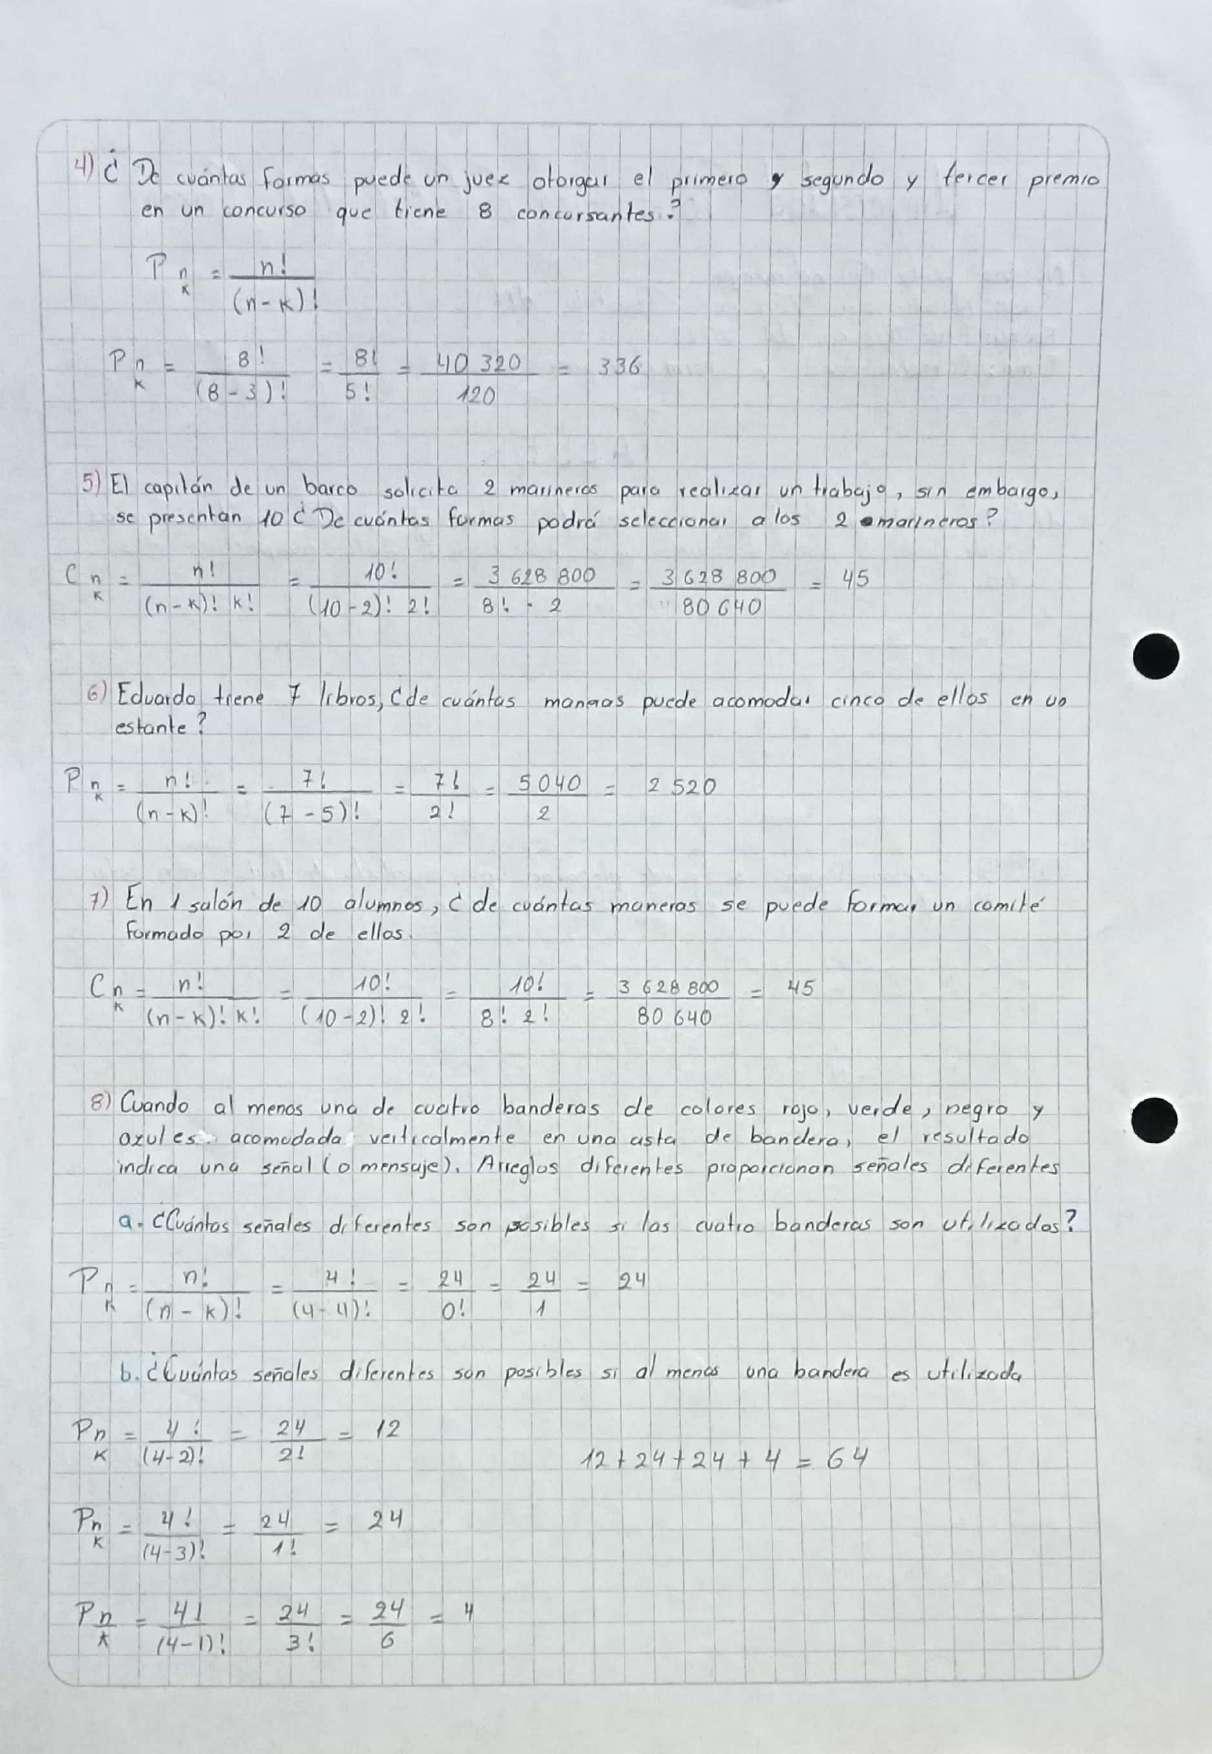 4) ¿De cuántas formas puede un juez otorgar el primero y segundo y tercer premio
en un concurso que tiene 8 concursantes?
P n/k = n! / (n-k)!
P n/k = 8! / (8-3)! = 8! / 5! = 40 320 / 120 = 336
5) El capitán de un barco solicita 2 marineros para realizar un trabajo, sin embargo,
se presentan 10 ¿De cuántas formas podrá seleccionar a los 2 marineros?
C n/k = n! / (n-k)! k! = 10! / (10-2)! 2! = 3 628 800 / 8! · 2 = 3 628 800 / 80 640 = 45
6) Eduardo tiene 7 libros, ¿de cuántas maneras puede acomodar cinco de ellos en un
estante?
P n/k = n! / (n-k)! = 7! / (7-5)! = 7! / 2! = 5 040 / 2 = 2 520
7) En 1 salón de 10 alumnos, ¿de cuántas maneras se puede formar un comité
formado por 2 de ellos.
C n/k = n! / (n-k)! k! = 10! / (10-2)! 2! = 10! / 8! 2! = 3 628 800 / 80 640 = 45
8) Cuando al menos una de cuatro banderas de colores rojo, verde, negro y
azules acomodada verticalmente en una asta de bandera, el resultado
indica una señal (o mensaje). Arreglos diferentes proporcionan señales diferentes
a. ¿Cuántas señales diferentes son posibles si las cuatro banderas son utilizadas?
P n/k = n! / (n-k)! = 4! / (4-4)! = 24 / 0! = 24 / 1 = 24
b. ¿Cuántas señales diferentes son posibles si al menos una bandera es utilizada
P n/k = 4! / (4-2)! = 24 / 2! = 12
12+24+24+4=64
P n/k = 4! / (4-3)! = 24 / 1! = 24
P n/k = 4! / (4-1)! = 24 / 3! = 24 / 6 = 4